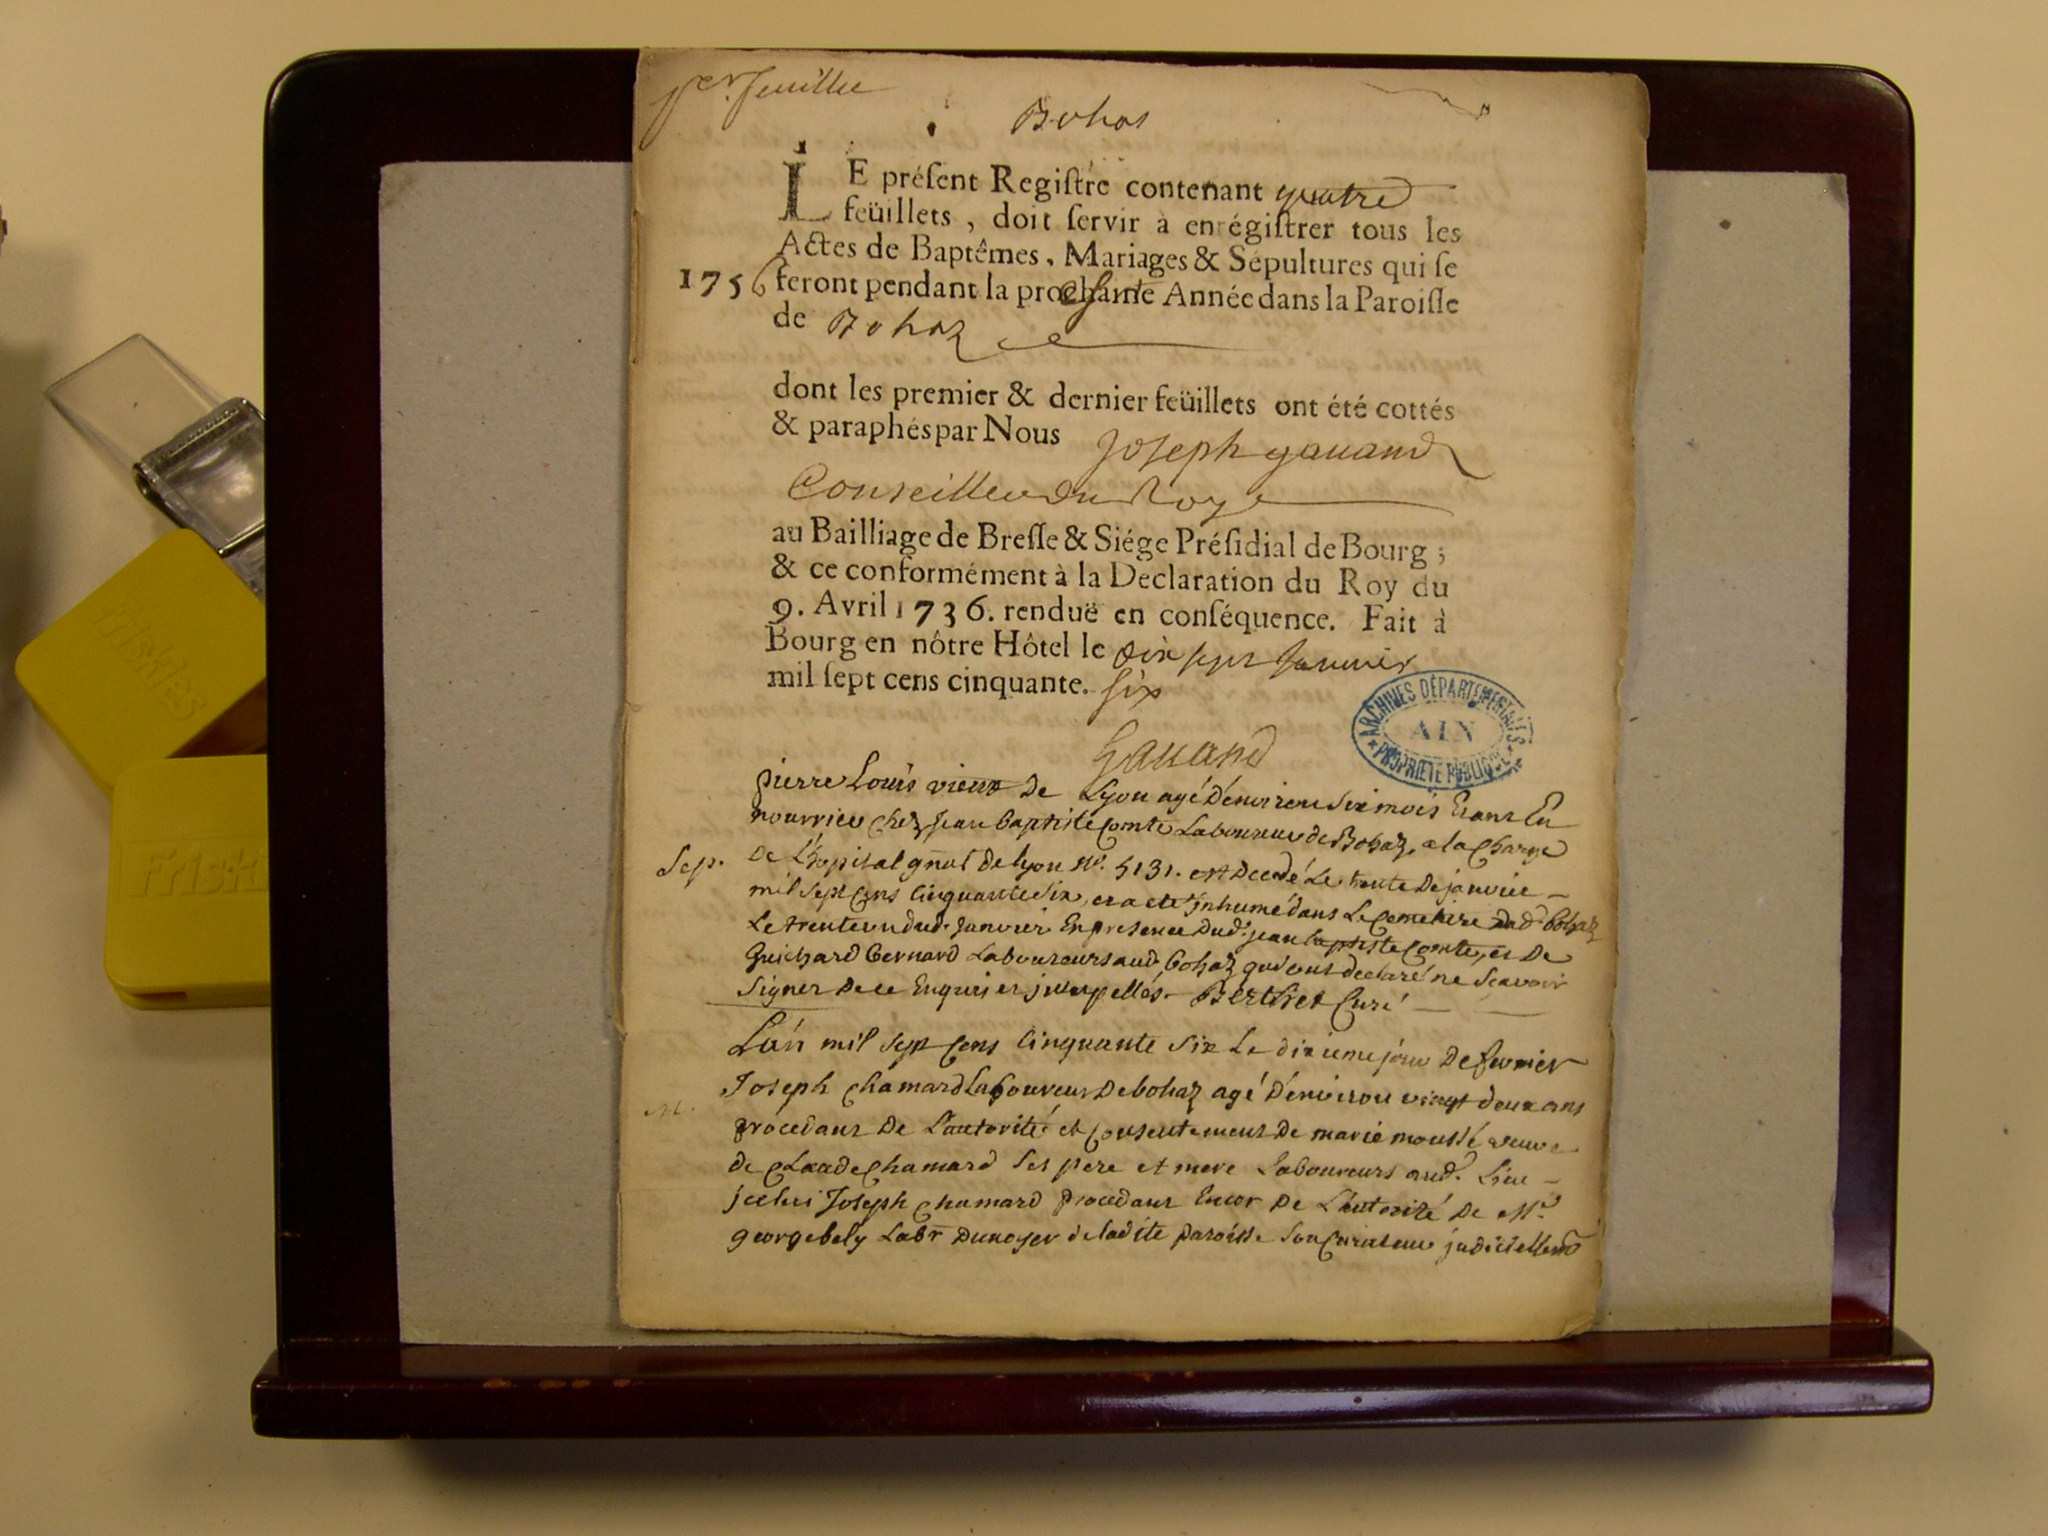 1er feuillee
Bohas
LE préſent Regiſtre contenant quatre
feüillets, doit ſervir à enrégiſtrer tous les
Actes de Baptêmes, Mariages & Sépultures qui ſe
1756 feront pendant la prochaine Année dans la Paroiſſe
de Bohaz
dont les premier & dernier feüillets ont été cottés
& paraphés par Nous Joseph gauand
Conseiller du Roy
au Bailliage de Breſſe & Siége Préſidial de Bourg ;
& ce conformément à la Declaration du Roy du
9. Avril 1736. renduë en conſéquence. Fait à
Bourg en nôtre Hôtel le dix sept Janvier
mil ſept cens cinquante. six
Gauand
ARCHIVES DÉPARTEMENTALES
AIN
PROPRIÉTÉ PUBLIQUE
pierre Louis vieux De Lyon agé D'environ six mois Etant En
nourrice chez jean baptiste Comte Laboureur de Bohaz, a la Charge
Sep. De L'hopital gñal de lyon No. 5131. est Decedé Le trente De janvier
mil sept cens cinquante six, et a eté Inhumé dans Le Cemetiere dud. bohaz
Le trente un dud. Janvier En presence Dud. jean baptiste Comte, et De
Guichard Bernard Laboureurs aud. bohaz qui ont declaré ne scavoir
signer De ce Enquis et interpellés. Berthet Curé
L'an mil sept cens cinquante six Le dixieme jour De fevrier
Joseph Chamard Laboureur De bohaz agé D'environ vingt deux ans
M. procedant De L'autorité et Consentement De marie moussé veuve
de Claude Chamard ses pere et mere Laboureurs aud. Lieu
icelui Joseph Chamard procedant Encor De L'autorité De Me
george bely Labr Dunoyer de ladite paroisse son Curateur judiciellemt
Friskies
Friski